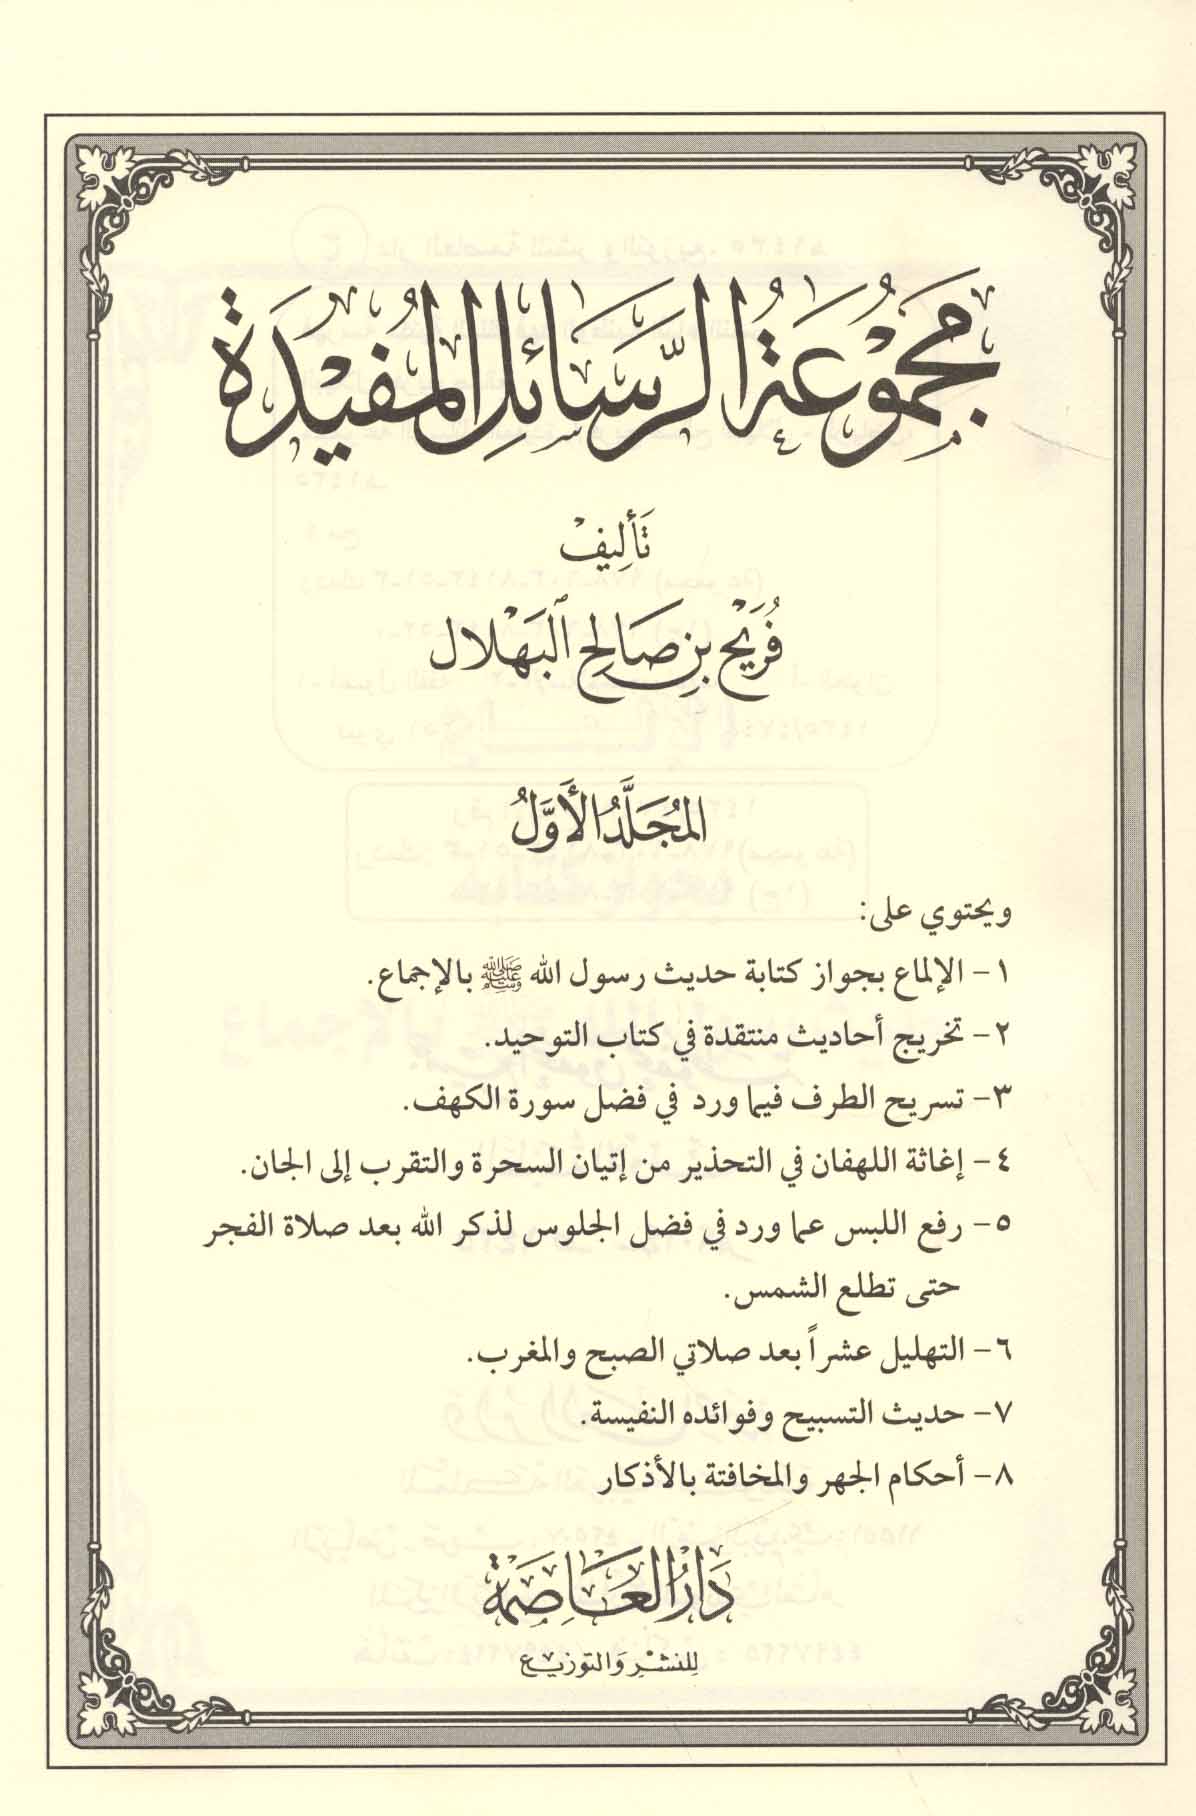 مَجْمُوعَةُ الرَّسَائِلِ المُفِيْدَةِ
تَألِيف
فُرَيْح بن صَالِح البَهْلال
المُجَلَّدُ الأَوَّلُ
ويحتوي على:
١- الإلماع بجواز كتابة حديث رسول الله ﷺ بالإجماع.
٢- تخريج أحاديث منتقدة في كتاب التوحيد.
٣- تسريح الطرف فيما ورد في فضل سورة الكهف.
٤- إغاثة اللهفان في التحذير من إتيان السحرة والتقرب إلى الجان.
٥- رفع اللبس عما ورد في فضل الجلوس لذكر الله بعد صلاة الفجر
حتى تطلع الشمس.
٦- التهليل عشراً بعد صلاتي الصبح والمغرب.
٧- حديث التسبيح وفوائده النفيسة.
٨- أحكام الجهر والمخافتة بالأذكار
دَارُ العَاصِمَة
للنشر والتوزيع